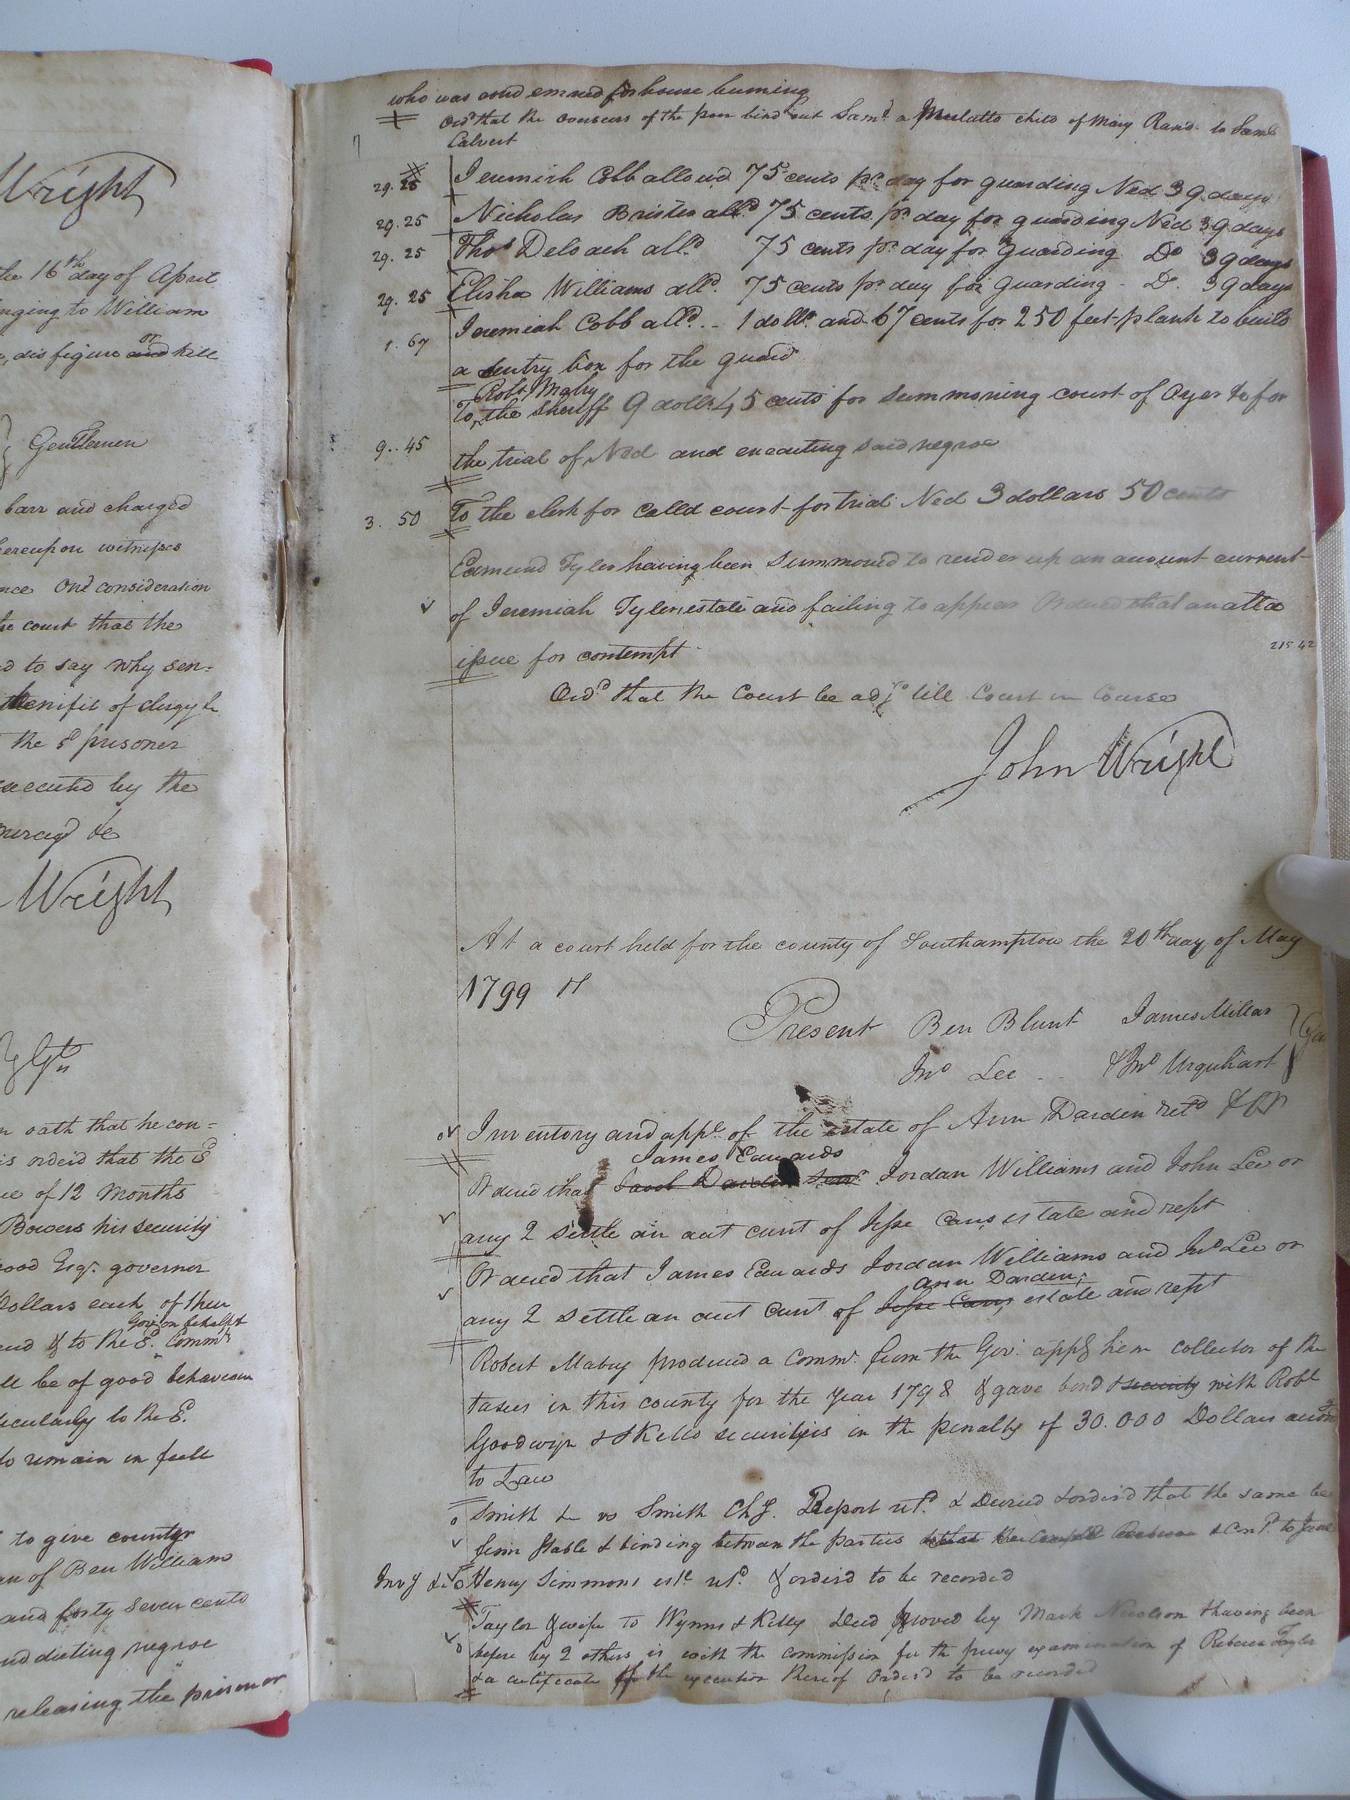 Wright
the 16th day of April
nging to William
or
, disfigure and kill
Gentlemen
barr and charged
hereupon witnesses
nce Ond consideration
the court that the
d to say why sen:
benifit of clergy &c
the sd prisoner
xecuted by the
mercy &c
Wright
Gts
n oath that he con=
is orderd that the sd
ue of 12 Months
Bowers his security
ood Esqr. governor
Dollars each of them
Govr on behalf of
and & to the sd. Commr
ll be of good behaveour
ticularly to the sd.
to remain in full
to give county
an of Ben William
and forty seven cents
and dieting negroe
releasing the prisoner
who was condemned for house burning
Ordd that the overseers of the poor bind out Saml. a Mulatto child of Mary Rand. to Saml
Calvert
29. 25 Jeremiah Cobb allowd 75 cents pr. day for guarding Ned 39 days
29. 25 Nicholas Brister alld. 75 cents pr. day for guarding Ned 39 days
29. 25 Thos Deloach alld. 75 cents pr. day for guarding Do 39 days
29. 25 Elisha Williams alld. 75 cents pr day for guarding - Do. 39 days
1. 67 Jeremiah Cobb alld. - 1 dollr. and 67 cents for 250 feet plank to build
a sentry box for the guard
Robt Mabry
To the sheriff 9 dolls 45 cents for summoning court of Oyer & for
9.. 45 the trial of Ned and executing said negroe
3. 50 To the clerk for calld court for trial Ned 3 dollars 50 cents
Edmund Tyler having been summoned to render up an account current
of Jeremiah Tylers estate and failing to appear Ordered that an atta
215 42
issue for contempt
Ordd that the Court be adjd till Court in Course
John Wright
At a court held for the county of Southampton the 20th day of May
1799
Present Ben Blunt James Millar
Jno Lee - - & Jno Urquhart
Inventory and appt. of the estate of Ann Darden retd & OR
James Edwards
Ordered that Jacob Darden Jordan Williams and John Lee or
any 2 settle an acct curnt of Jesse Cars estate and rept
Ordered that James Edwards Jordan Williams and Jno Lee or
Ann Darden,
any 2 settle an acct curnt of Jesse Cars estate and rept
Robert Mabry produced a Commr. from the Govr: appg him collector of the
taxes in this county for the Year 1798 & gave bond & security with Robt
Goodwyn & S Kello securities in the penalty of 30.000 Dollars accordg
to Law
Smith &c vs Smith Chy. Report retd. & Decred & orderd that the same be
firm stable & binding between the parties
Invy &c Henry Simmons este retd. & orderd to be recorded
Taylor & wife to Wynns & Kelly Deed proved by Mark Nicolson & having been
before by 2 others is with the commission for the privy examination of Rebecca Taylor
& a certificate of the execution thereof Orderd to be recorded